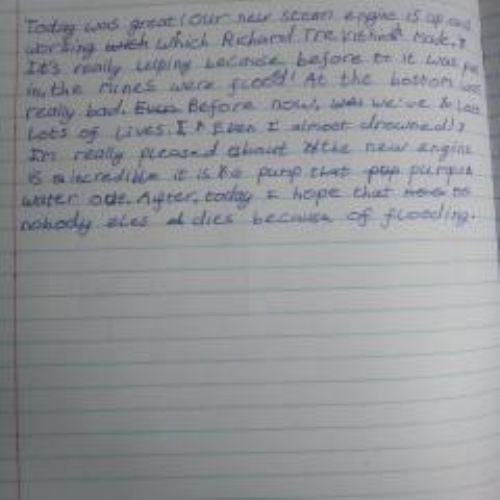 Today was great! Our new steam engine is up and
working which Richard Trevithick made,
It's really helping because before it was put
in, the mines were flood! At the bottom was
really bad. Before now, we've lost
lots of lives. Even I almost drowned!
I'm really pleased about the new engine
is incredible it is a pump that pumps
water out. After, today I hope that no
nobody eles dies because of flooding.